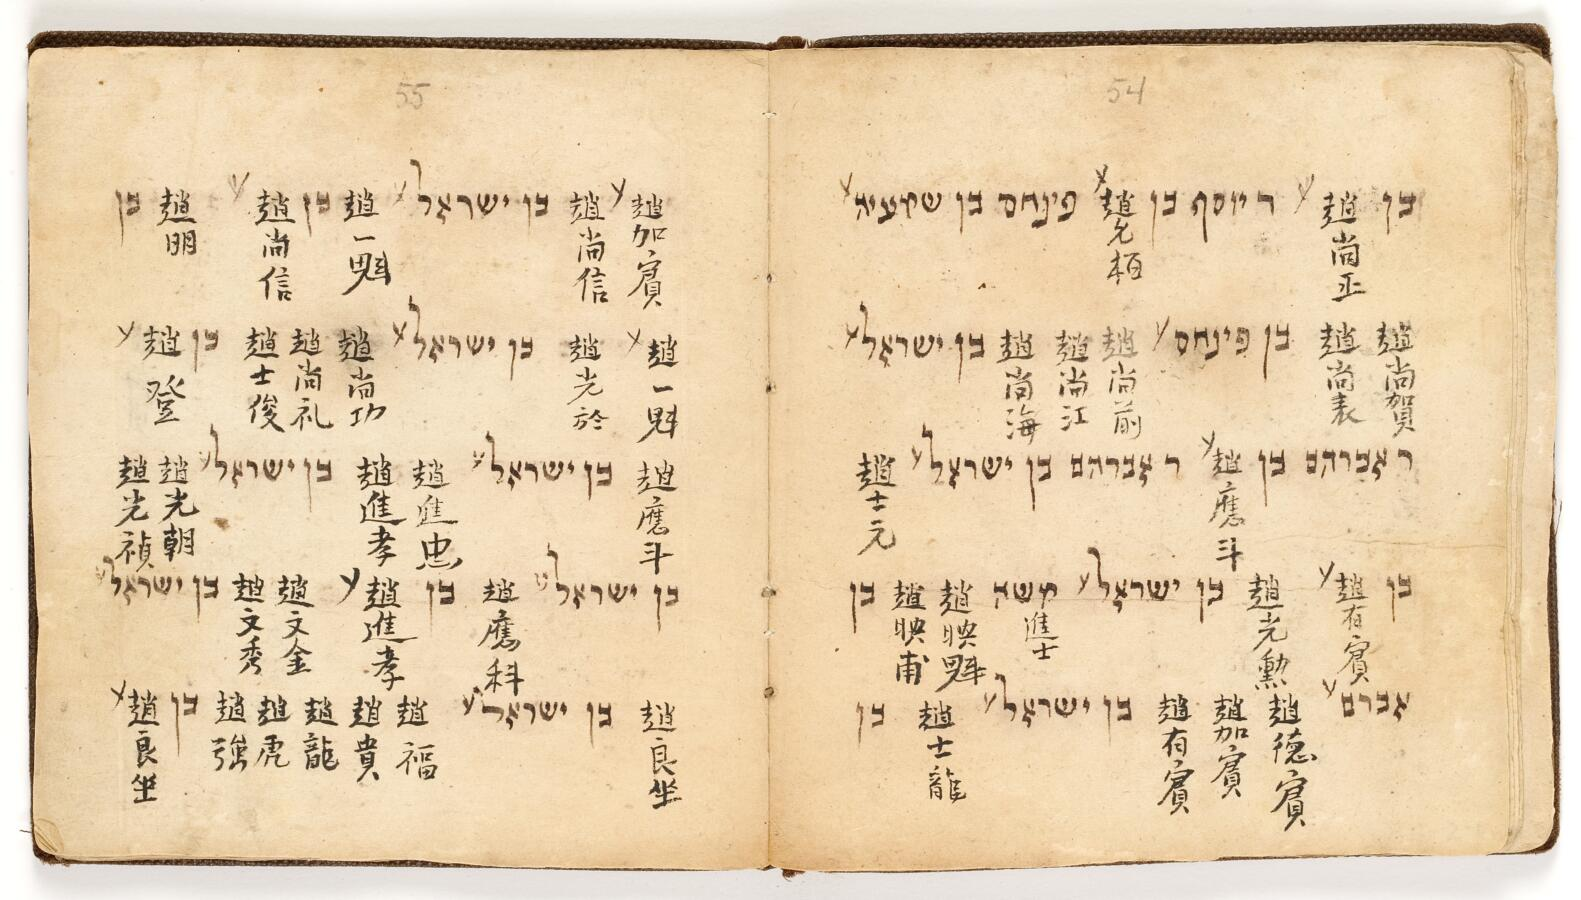 54
בן 趙尚正 ע ר יוסף בן 趙允栢 ע פינחס בן שמעיה ע
趙尚賀 趙尚表 בן פינחס ע 趙尚前 趙尚江 趙尚海 בן ישראל ע
ר אברהם בן 趙應斗 ע ר אברהם בן ישראל ע 趙士元
בן 趙有賓 ע 趙光勳 בן ישראל ע משה 進士 趙映魁 趙映甫 בן
אברם ע 趙德賓 趙加賓 趙有賓 בן ישראל ע 趙士龍 בן
55
趙加賓 ע 趙尚信 בן ישראל ע 趙一魁 בן 趙尚信 ע 趙明 בן
趙一魁 ע 趙光於 בן ישראל ע 趙尚功 趙尚礼 趙士俊 בן 趙登 ע
趙應斗 בן ישראל ע 趙進忠 趙進孝 בן ישראל ע 趙光朝 趙光禎
בן ישראל ע 趙應科 בן 趙進孝 ע 趙文金 趙文秀 בן ישראל ע
趙良坐 בן ישראל ע 趙福 趙貴 趙龍 趙虎 趙強 בן 趙良坐 ע